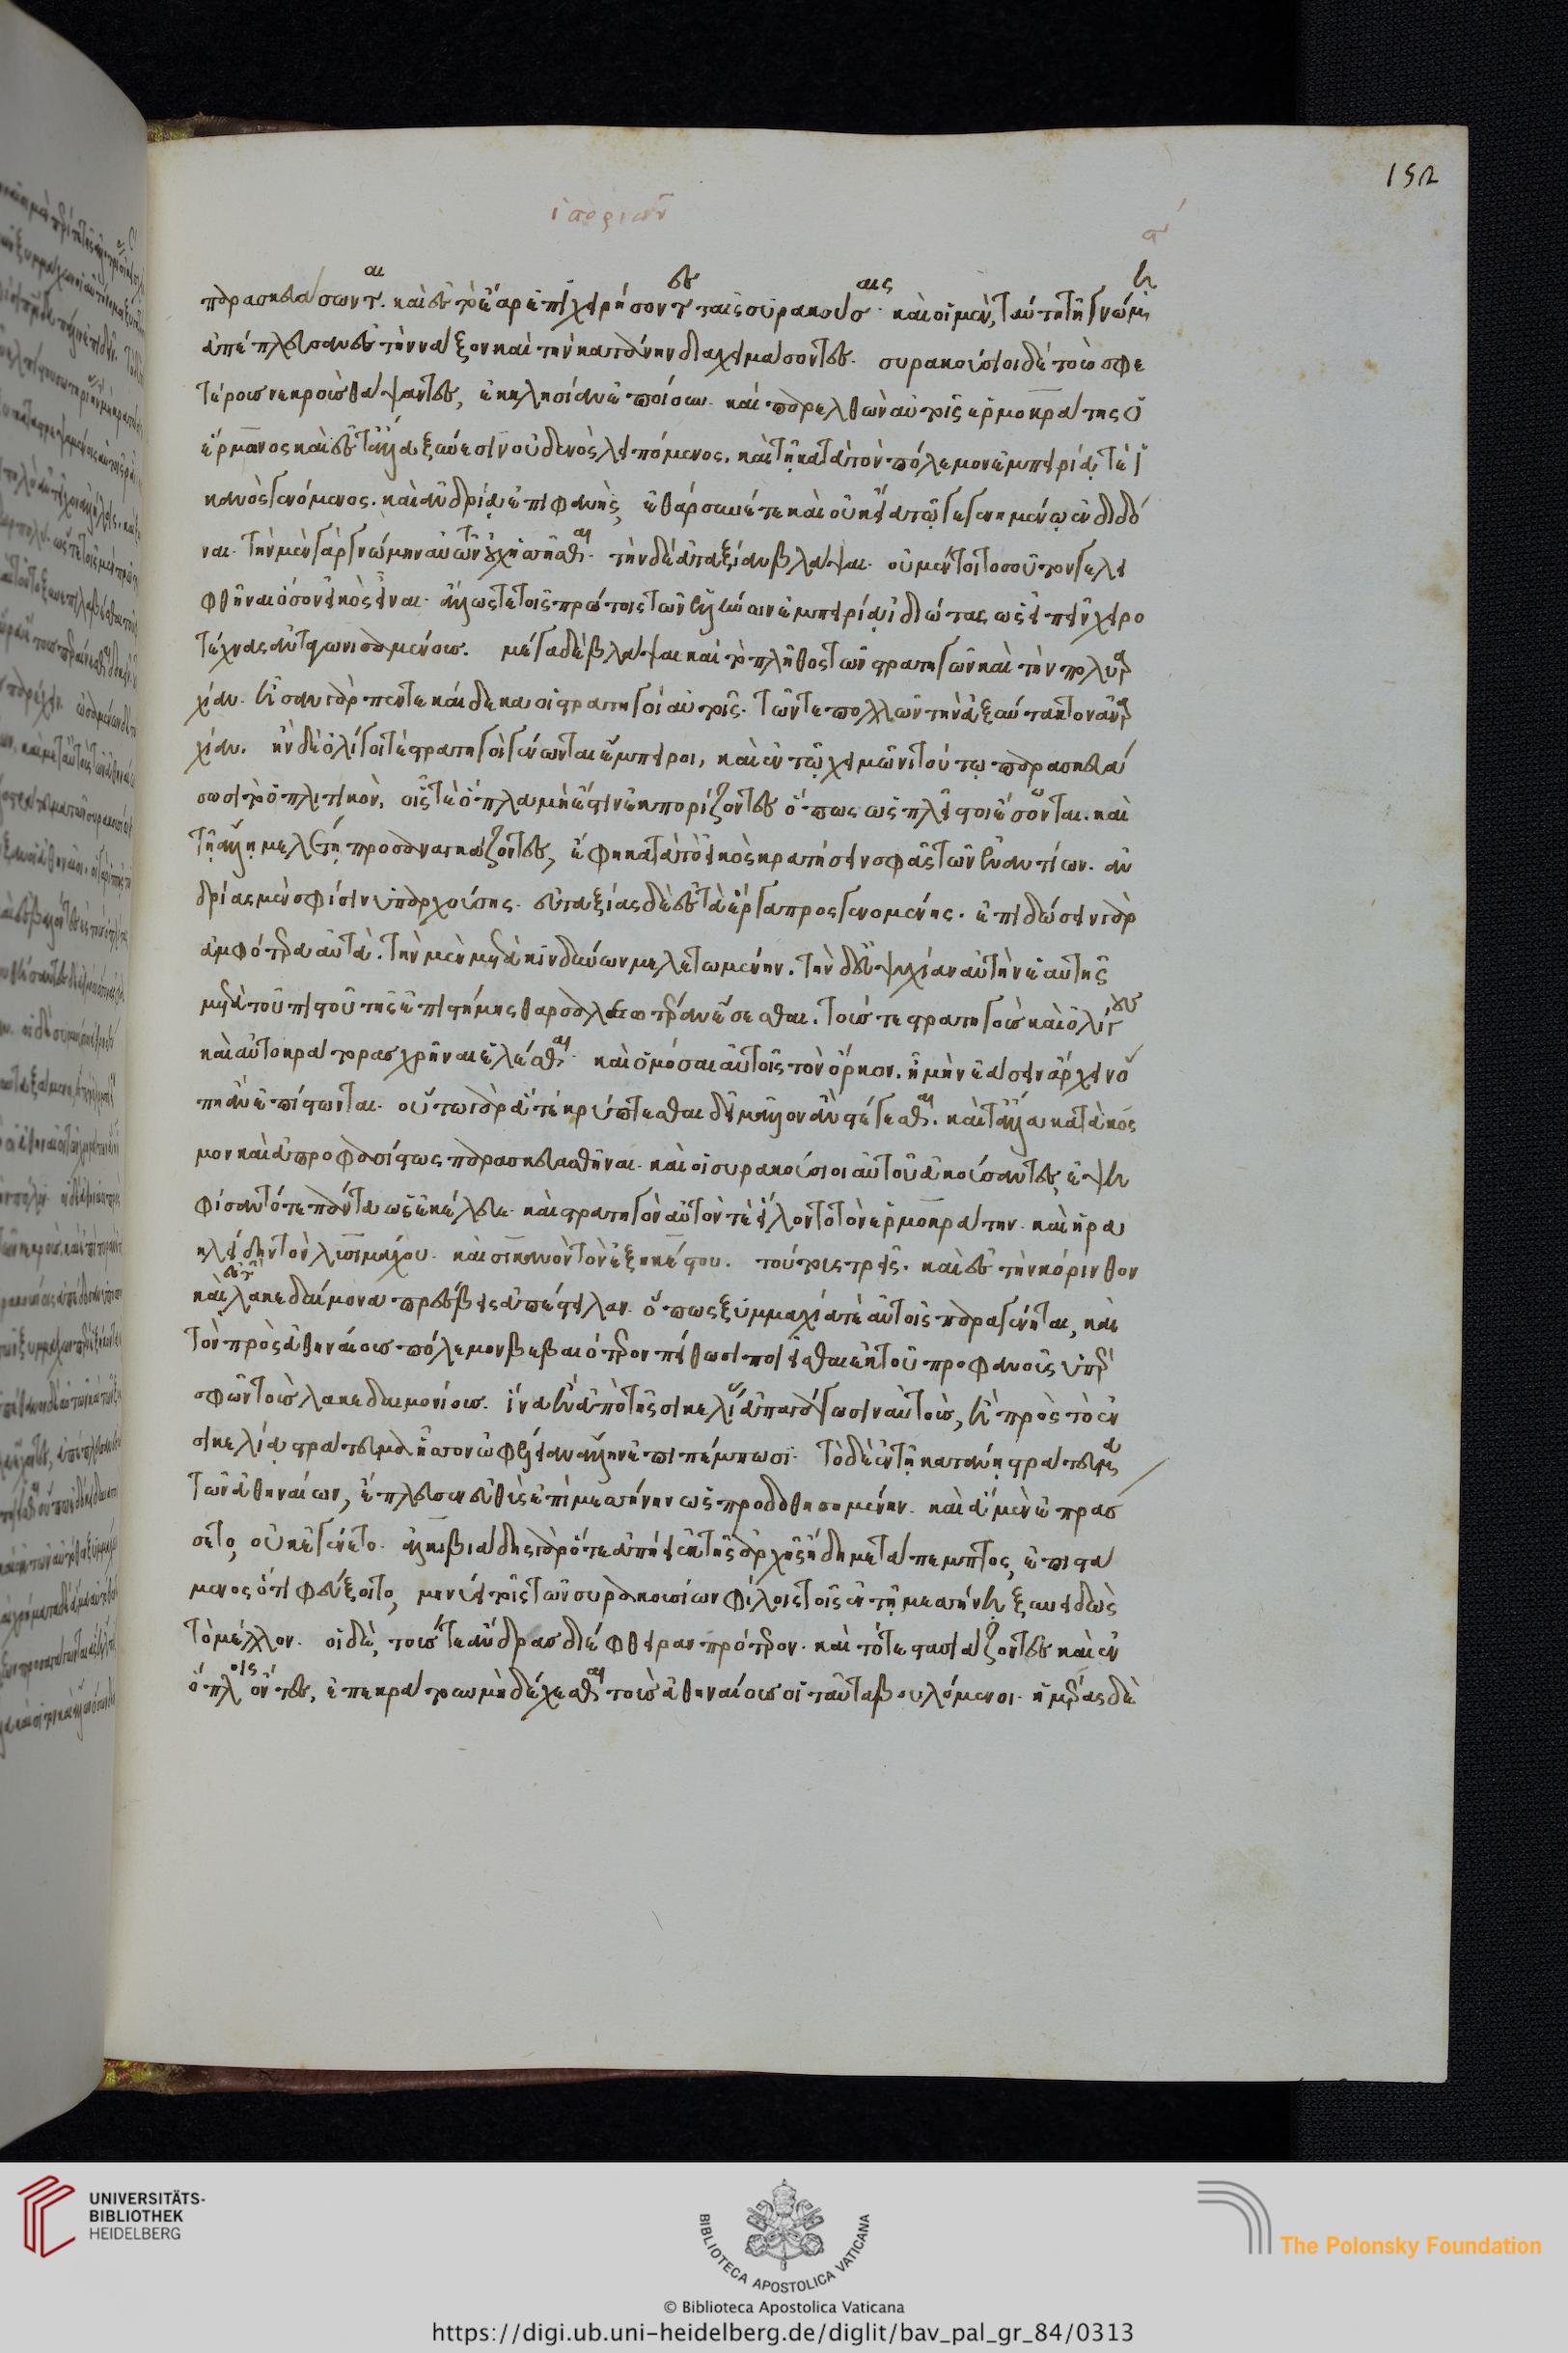 152
ἱστοριῶν
ϛʹ
παρασκευάσωνται. καὶ ἐς τὸ ἔαρ ἐπιχειρήσοντες ταῖς συρακούσαις. καὶ οἱ μὲν, ταύτη τῆ γνώμη
ἀπέπλευσαν ἐς τὴν νάξον καὶ τὴν κατάνην διαχειμάσοντες. συρακούσιοι δὲ τοὺς σφε
τέρους νεκροὺς θάψαντες, ἐκκλησίαν ἐποίουν. καὶ παρελθὼν αὐτοῖς ἑρμοκράτης ὁ
ἕρμωνος καὶ ἐς τἆλλα ξύνεσιν οὐδενὸς λειπόμενος. καὶ τῆ κατὰ τὸν πόλεμον ἐμπειρίᾳ τε ἱ
κανὸς γενόμενος. καὶ ἀνδρίᾳ ἐπιφανὴς, ἐθάρσυνέ τε καὶ οὐκ εἴα τῷ γεγενημένῳ ἐνδιδό
ναι. τὴν μὲν γὰρ γνώμην αὐτῶν οὐχ ἡσσῆσθαι. τὴν δὲ ἀταξίαν βλάψαι. οὐ μέντοι τοσοῦτον γε λει
φθῆναι ὅσον εἰκὸς εἶναι. ἄλλως τε τοῖς πρώτοις τῶν ἑλλήνων ἐμπειρίᾳ ἰδιώτας ὡς εἰπεῖν χειρο
τέχνας ἀνταγωνισαμένους. μέγα δὲ βλάψαι καὶ τὸ πλῆθος τῶν στρατηγῶν καὶ τὴν πολυαρ
χίαν. ἦσαν γὰρ πεντεκαίδεκα οἱ στρατηγοὶ αὐτοῖς. τῶν τε πολλῶν τὴν ἀξύντακτον ἀναρ
χίαν. ἢν δὲ ὀλίγοι τε στρατηγοὶ γένωνται ἔμπειροι, καὶ ἐν τῷ χειμῶνι τούτῳ παρασκευά
σωσι τὸ ὁπλιτικὸν, οἷς τε ὅπλα μὴ ἔστιν ἐκπορίζοντες ὅπως ὡς πλεῖστοι ἔσονται. καὶ
τῆ ἄλλη μελέτη προσαναγκάζοντες, ἔφη κατὰ τὸ εἰκὸς κρατήσειν σφᾶς τῶν ἐναντίων. ἀν
δρίας μὲν σφίσιν ὑπαρχούσης. εὐταξίας δὲ ἐς τὰ ἔργα προσγενομένης. ἐπιδώσειν γὰρ
ἀμφότερα αὐτά. τὴν μὲν μετὰ κινδύνων μελετωμένην. τὴν δ' εὐψυχίαν αὐτὴν ἑαυτῆς
μετὰ τοῦ πιστοῦ τῆς ἐπιστήμης θαρσαλεωτέραν ἔσεσθαι. τούς τε στρατηγοὺς καὶ ὀλίγους
καὶ αὐτοκράτορας χρῆναι ἑλέσθαι. καὶ ὀμόσαι αὐτοῖς τὸν ὅρκιον. ἦ μὴν ἐάσειν ἄρχειν ὅ
πη ἂν ἐπίστωνται. οὕτω γὰρ ἅ τε κρύπτεσθαι δεῖ μᾶλλον ἂν στέγεσθαι. καὶ τἆλλα κατὰ κόσ
μον καὶ ἀπροφασίστως παρασκευασθῆναι. καὶ οἱ συρακούσιοι αὐτοῦ ἀκούσαντες, ἐψη
φίσαντό τε πάντα ὡς ἐκέλευε. καὶ στρατηγὸν αὐτόν τε εἵλοντο τὸν ἑρμοκράτην. καὶ ἡρα
κλείδην τὸν λυσιμάχου. καὶ σικανὸν τὸν ἐξηκέστου. τούτους τρεῖς. καὶ ἐς τὴν κόρινθον
καὶ ἐς τὴν λακεδαίμονα πρέσβεις ἀπέστειλαν. ὅπως ξυμμαχία τε αὐτοῖς παραγένηται, καὶ
τὸν πρὸς ἀθηναίους πόλεμον βεβαιότερον πείθωσι ποιεῖσθαι ἐκ τοῦ προφανοῦς ὑπὲρ
σφῶν τοὺς λακεδαιμονίους. ἵνα ἢ ἀπὸ τῆς σικελίας ἀπαγάγωσιν αὐτοὺς, ἢ πρὸς τὸ ἐν
σικελίᾳ στράτευμα ἧσσον ὠφελίαν ἄλλην ἐπιπέμπωσι. τὸ δὲ ἐν τῆ κατάνῃ στράτευμα
τῶν ἀθηναίων, ἔπλευσεν εὐθὺς ἐπὶ μεσσήνην ὡς προδοθησομένην. καὶ ἃ μὲν ἐπράσ
σετο, οὐκ ἐγένετο. ἀλκιβιάδης γὰρ ὅτε ἀπήει ἐκ τῆς ἀρχῆς ἤδη μετάπεμπτος, ἐπιστά
μενος ὅτι φεύξοιτο, μηνύει τοῖς τῶν συρακουσίων φίλοις τοῖς ἐν τῆ μεσσήνῃ ξυνειδὼς
τὸ μέλλον. οἱ δὲ, τούς τε ἄνδρας διέφθειραν πρότερον. καὶ τότε στασιάζοντες καὶ ἐν
ὅπλοις ὄντες, ἐπεκράτουν μὴ δέχεσθαι τοὺς ἀθηναίους οἱ ταῦτα βουλόμενοι. ἡμέρας δὲ
UNIVERSITÄTS-
BIBLIOTHEK
HEIDELBERG
BIBLIOTECA APOSTOLICA VATICANA
The Polonsky Foundation
© Biblioteca Apostolica Vaticana
https://digi.ub.uni-heidelberg.de/diglit/bav_pal_gr_84/0313